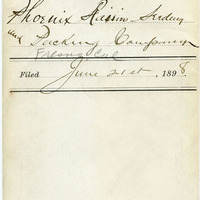 Phoenix Raisin Seeding
and Packing Company
Fresno Cal
Filed June 21st, 1898.